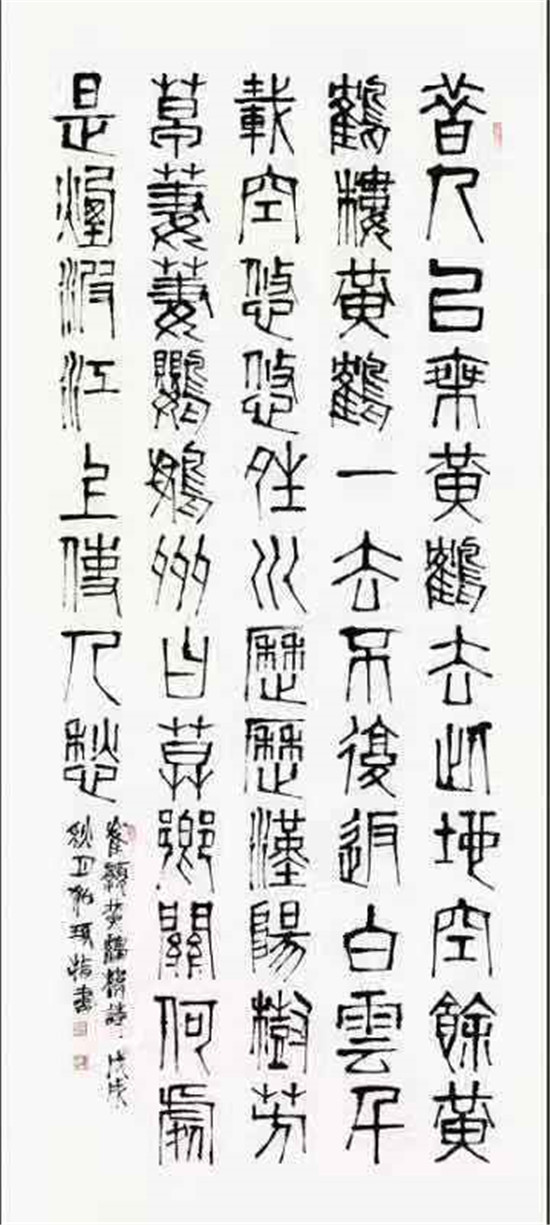 昔人已乘黃鶴去此地空餘黃
鶴樓黃鶴一去不復返白雲千
載空悠悠晴川歷歷漢陽樹芳
草萋萋鸚鵡州日暮鄉關何處
是煙波江上使人愁
崔顥黃鶴樓詩戊戌
秋月書